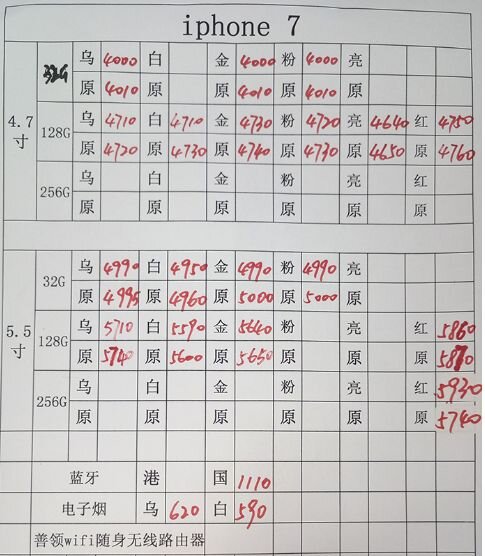 iphone 7
4.7寸 32G 乌 4000 白 金 4000 粉 4000 亮
原 4010 原 原 4010 原 4010 原
128G 乌 4710 白 4710 金 4730 粉 4720 亮 4640 红 4750
原 4720 原 4730 原 4740 原 4730 原 4650 原 4760
256G 乌 白 金 粉 亮 红
原 原 原 原 原 原
5.5寸 32G 乌 4990 白 4950 金 4990 粉 4990 亮
原 4995 原 4960 原 5000 原 5000 原
128G 乌 5710 白 5590 金 5640 粉 亮 红 5860
原 5740 原 5600 原 5650 原 原 原 5870
256G 乌 白 金 粉 亮 红 5930
原 原 原 原 原 原 5740
蓝牙 港 国 1110
电子烟 乌 620 白 590
善领wifi随身无线路由器